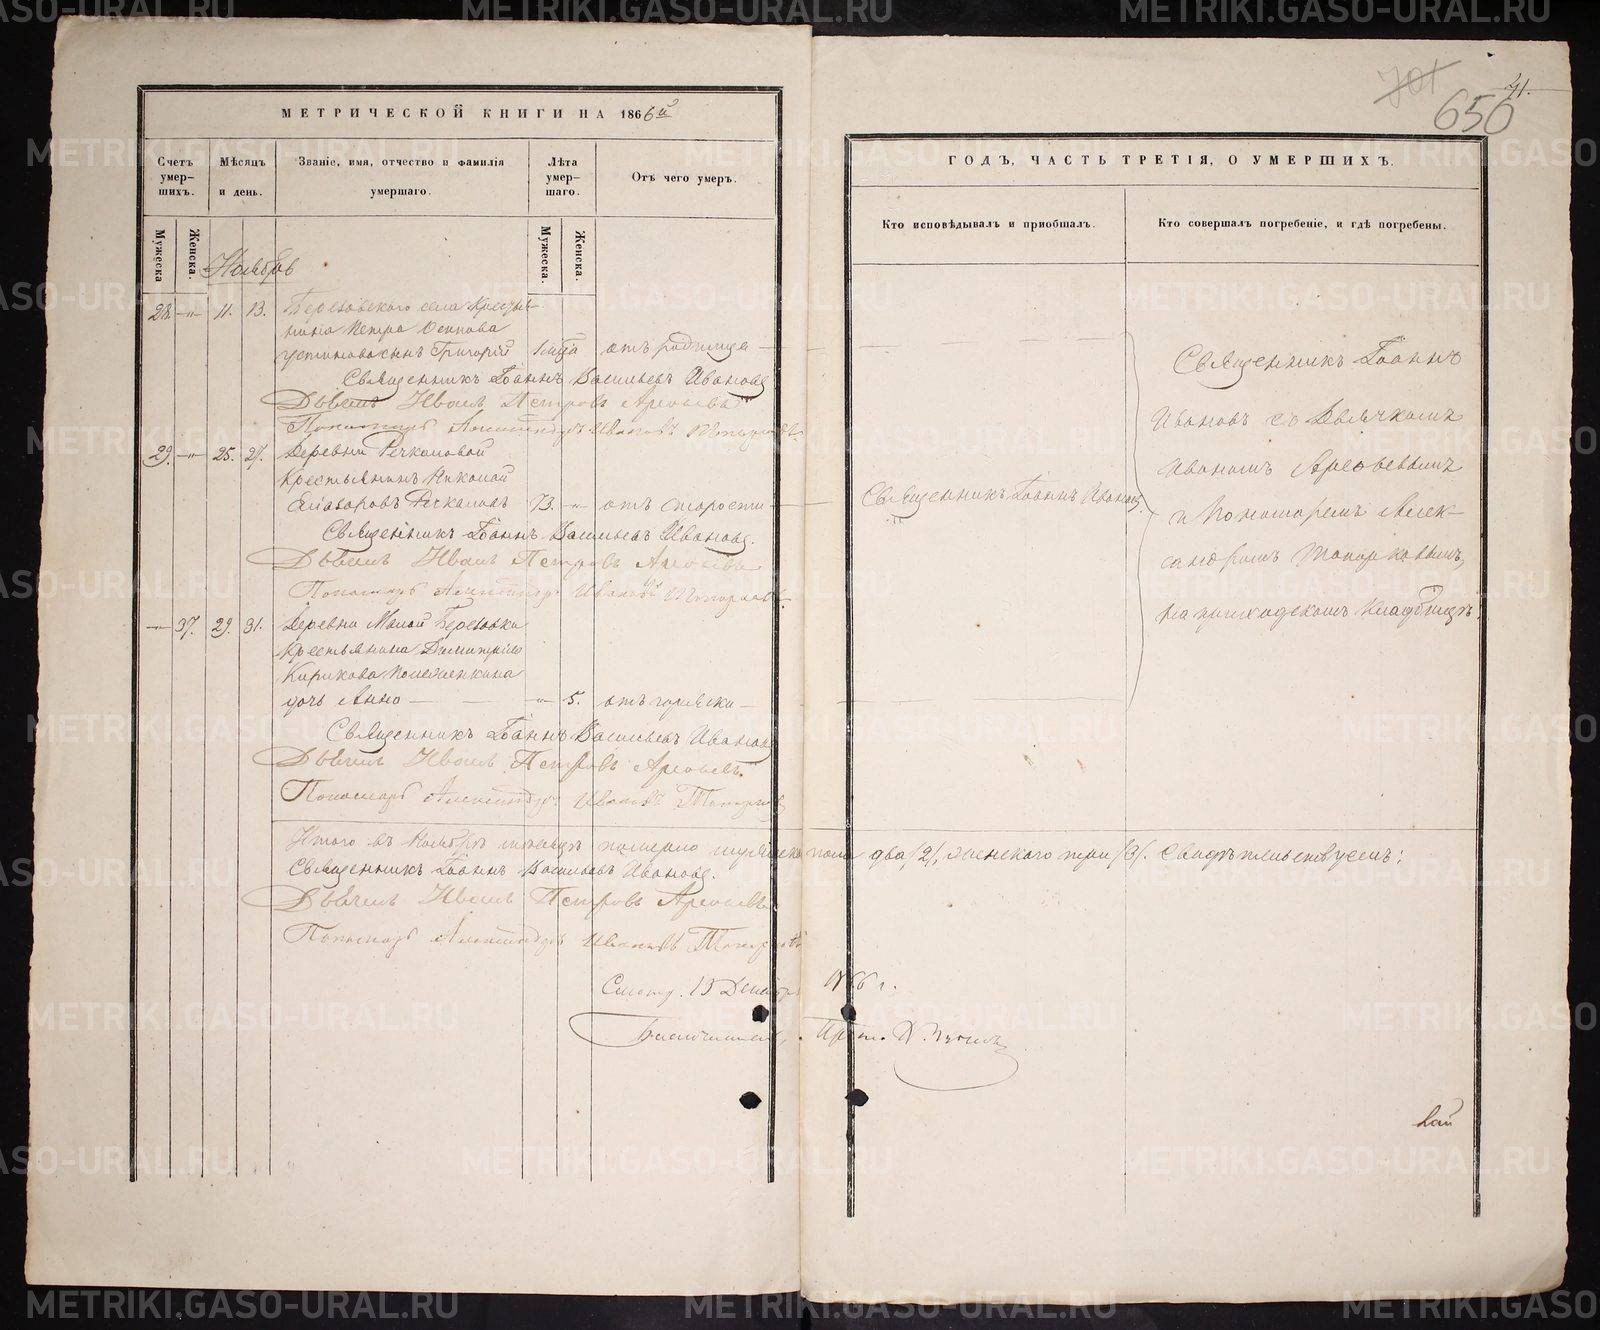 МЕТРИЧЕСКОЙ КНИГИ НА 1866й
Счетъ умер-шихъ.
Мѣсяцъ и день.
Званіе, имя, отчество и фамилія умершаго.
Лѣта умер-шаго.
Отъ чего умеръ.
Мужеска
Женска.
Мужеска.
Женска.
Ноябрь
28. 11. 13. Березовского села Кресть-
янина Петра Осипова
сынъ Григорій отъ родимца
Священникъ Іоаннъ Васильевъ Ивановъ
Дьячекъ Иванъ Петровъ
Пономарь Александръ Ивановъ
29. 25. 27. Деревни Речкаловой
Крестьянинъ Николай
Речкаловъ 73. отъ старости
Священникъ Іоаннъ Васильевъ Ивановъ.
Дьячекъ Иванъ Петровъ
Пономарь Александръ Ивановъ
37. 29. 31. Деревни Малой Березовки
Крестьянина Димитрія
Кирикова
дочь Анна 5. отъ горячки
Священникъ Іоаннъ Васильевъ Ивановъ
Дьячекъ Иванъ Петровъ
Пономарь Александръ Ивановъ
Итого въ Ноябрѣ мѣсяцѣ померло мужеска пола два /2/, женского три /3/. Свидѣтельствуемъ:
Священникъ Іоаннъ Васильевъ Ивановъ.
Дьячекъ Иванъ Петровъ
Пономарь Александръ Ивановъ
13 Декабря 1866 г.
701
650
41.
ГОДЪ, ЧАСТЬ ТРЕТІЯ, О УМЕРШИХЪ.
Кто исповѣдывалъ и пріобщалъ.
Кто совершалъ погребеніе, и гдѣ погребены.
Священникъ Іоаннъ Ивановъ
Священникъ Іоаннъ
Ивановъ съ Дьячкомъ
Иваномъ
и Пономаремъ Алек-
сандромъ Топорковымъ,
на приходскомъ кладбищѣ.
METRIKI.GASO-URAL.RU